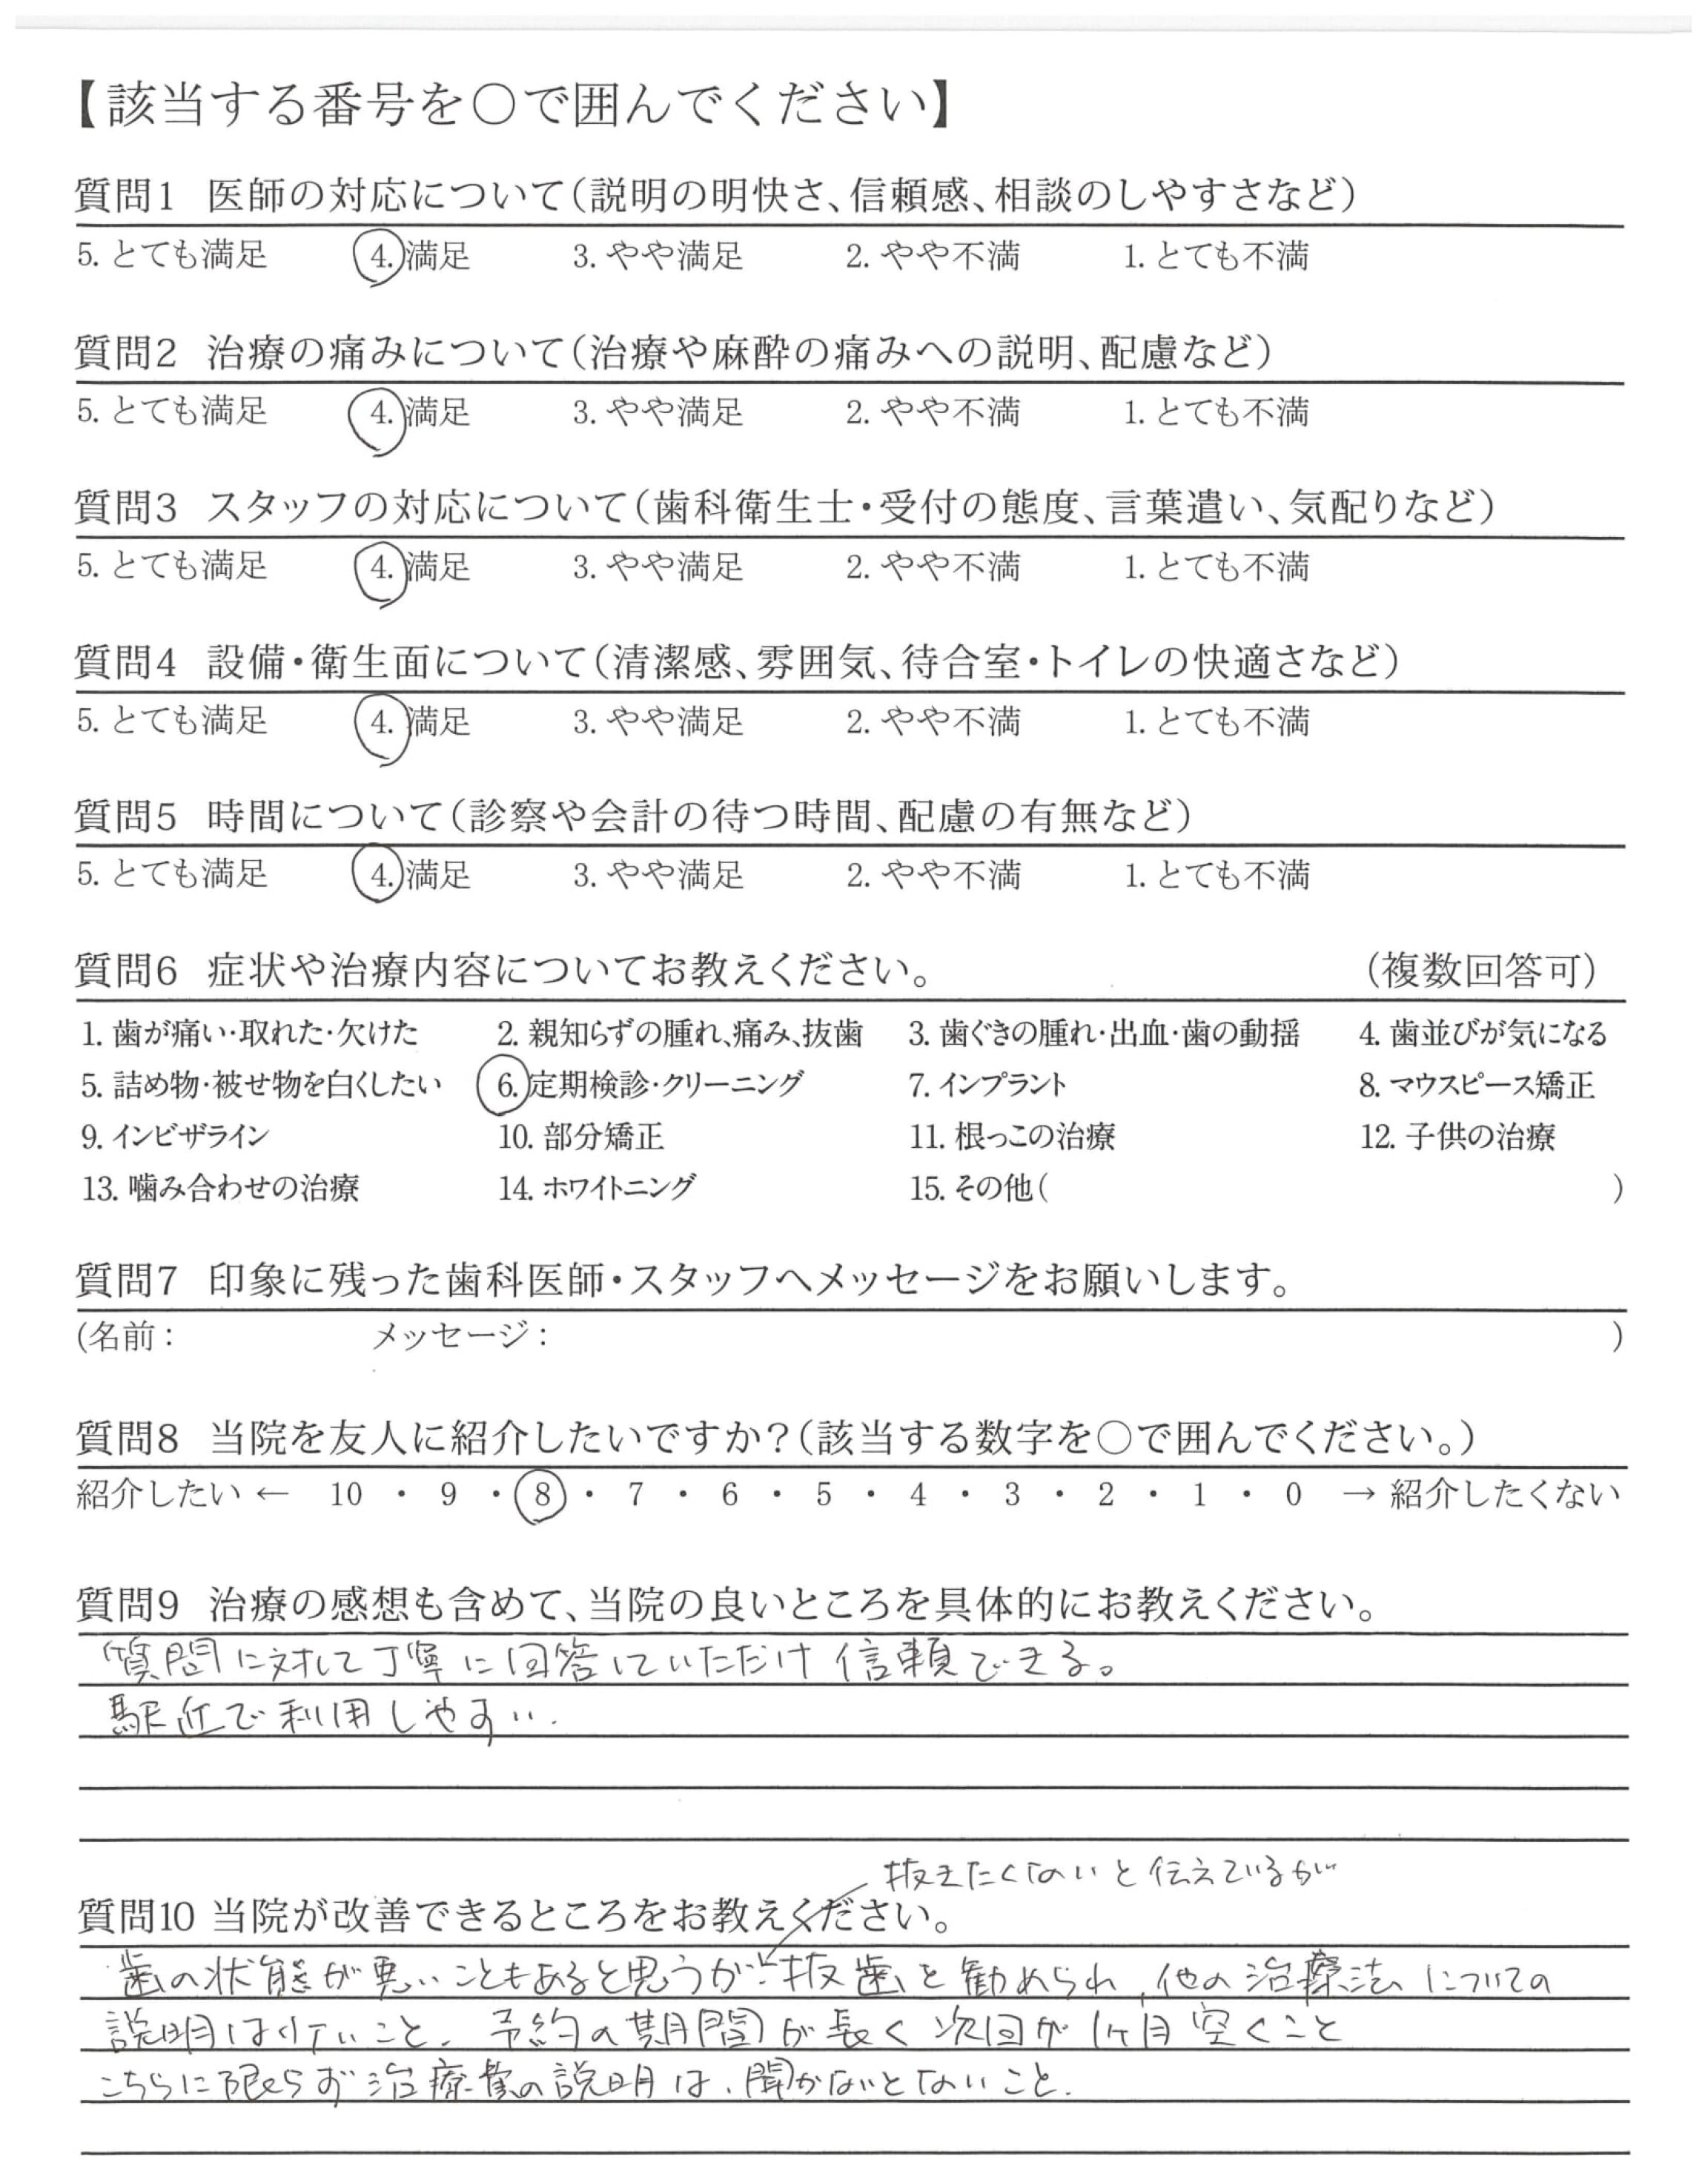 【該当する番号を○で囲んでください】
質問1 医師の対応について(説明の明快さ、信頼感、相談のしやすさなど)
5. とても満足 4. 満足 3. やや満足 2. やや不満 1. とても不満
質問2 治療の痛みについて(治療や麻酔の痛みへの説明、配慮など)
5. とても満足 4. 満足 3. やや満足 2. やや不満 1. とても不満
質問3 スタッフの対応について(歯科衛生士・受付の態度、言葉遣い、気配りなど)
5. とても満足 4. 満足 3. やや満足 2. やや不満 1. とても不満
質問4 設備・衛生面について(清潔感、雰囲気、待合室・トイレの快適さなど)
5. とても満足 4. 満足 3. やや満足 2. やや不満 1. とても不満
質問5 時間について(診察や会計の待つ時間、配慮の有無など)
5. とても満足 4. 満足 3. やや満足 2. やや不満 1. とても不満
質問6 症状や治療内容についてお教えください。 (複数回答可)
1. 歯が痛い・取れた・欠けた 2. 親知らずの腫れ、痛み、抜歯 3. 歯ぐきの腫れ・出血・歯の動揺 4. 歯並びが気になる
5. 詰め物・被せ物を白くしたい 6. 定期検診・クリーニング 7. インプラント 8. マウスピース矯正
9. インビザライン 10. 部分矯正 11. 根っこの治療 12. 子供の治療
13. 噛み合わせの治療 14. ホワイトニング 15. その他( )
質問7 印象に残った歯科医師・スタッフへメッセージをお願いします。
(名前: メッセージ: )
質問8 当院を友人に紹介したいですか?(該当する数字を○で囲んでください。)
紹介したい ← 10 ・ 9 ・ 8 ・ 7 ・ 6 ・ 5 ・ 4 ・ 3 ・ 2 ・ 1 ・ 0 → 紹介したくない
質問9 治療の感想も含めて、当院の良いところを具体的にお教えください。
質問に対して丁寧に回答していただけ信頼できる。
駅近で利用しやすい.
抜きたくないと伝えているが
質問10 当院が改善できるところをお教えください。
歯の状態が悪いこともあると思うが抜歯を勧められ、他の治療法についての
説明はないこと、予約の期間が長く次回が1ヶ月空くこと
こちらに限らず治療費の説明は、聞かないとないこと.